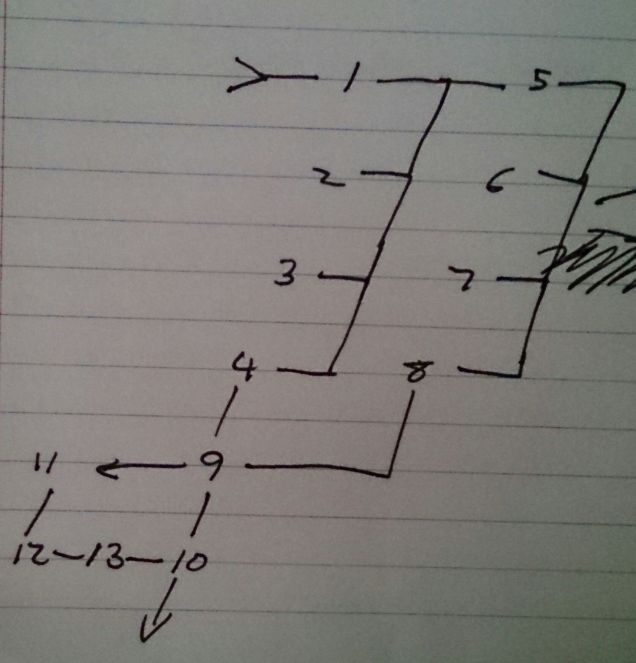 1 5
2 6
3 7
4 8
11 9
12 13 10